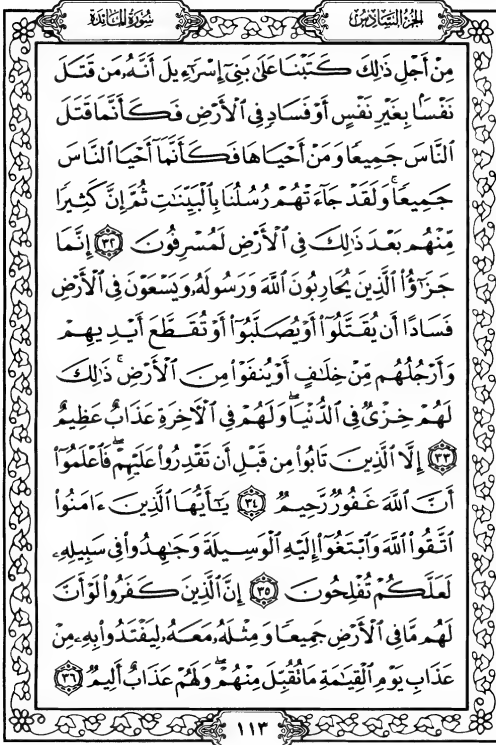 سُورَةُ المَائدَةِ
الجُزءُ السَّادِسُ
مِنْ أَجْلِ ذَٰلِكَ كَتَبْنَا عَلَىٰ بَنِىٓ إِسْرَٰٓءِيلَ أَنَّهُۥ مَن قَتَلَ
نَفْسًۢا بِغَيْرِ نَفْسٍ أَوْ فَسَادٍ فِى ٱلْأَرْضِ فَكَأَنَّمَا قَتَلَ
ٱلنَّاسَ جَمِيعًا وَمَنْ أَحْيَاهَا فَكَأَنَّمَآ أَحْيَا ٱلنَّاسَ
جَمِيعًا ۚ وَلَقَدْ جَآءَتْهُمْ رُسُلُنَا بِٱلْبَيِّنَٰتِ ثُمَّ إِنَّ كَثِيرًا
مِّنْهُم بَعْدَ ذَٰلِكَ فِى ٱلْأَرْضِ لَمُسْرِفُونَ ٣٢ إِنَّمَا
جَزَٰٓؤُا۟ ٱلَّذِينَ يُحَارِبُونَ ٱللَّهَ وَرَسُولَهُۥ وَيَسْعَوْنَ فِى ٱلْأَرْضِ
فَسَادًا أَن يُقَتَّلُوٓا۟ أَوْ يُصَلَّبُوٓا۟ أَوْ تُقَطَّعَ أَيْدِيهِمْ
وَأَرْجُلُهُم مِّنْ خِلَٰفٍ أَوْ يُنفَوْا۟ مِنَ ٱلْأَرْضِ ۚ ذَٰلِكَ
لَهُمْ خِزْىٌ فِى ٱلدُّنْيَا ۖ وَلَهُمْ فِى ٱلْءَاخِرَةِ عَذَابٌ عَظِيمٌ
٣٣ إِلَّا ٱلَّذِينَ تَابُوا۟ مِن قَبْلِ أَن تَقْدِرُوا۟ عَلَيْهِمْ ۖ فَٱعْلَمُوٓا۟
أَنَّ ٱللَّهَ غَفُورٌ رَّحِيمٌ ٣٤ يَٰٓأَيُّهَا ٱلَّذِينَ ءَامَنُوا۟
ٱتَّقُوا۟ ٱللَّهَ وَٱبْتَغُوٓا۟ إِلَيْهِ ٱلْوَسِيلَةَ وَجَٰهِدُوا۟ فِى سَبِيلِهِۦ
لَعَلَّكُمْ تُفْلِحُونَ ٣٥ إِنَّ ٱلَّذِينَ كَفَرُوا۟ لَوْ أَنَّ
لَهُم مَّا فِى ٱلْأَرْضِ جَمِيعًا وَمِثْلَهُۥ مَعَهُۥ لِيَفْتَدُوا۟ بِهِۦ مِنْ
عَذَابِ يَوْمِ ٱلْقِيَٰمَةِ مَا تُقُبِّلَ مِنْهُمْ ۖ وَلَهُمْ عَذَابٌ أَلِيمٌ ٣٦
١١٣